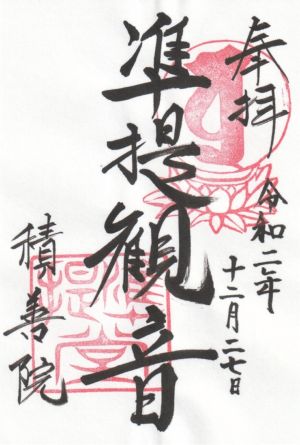 奉拝
令和二年
十二月二七日
準提観音
積善院